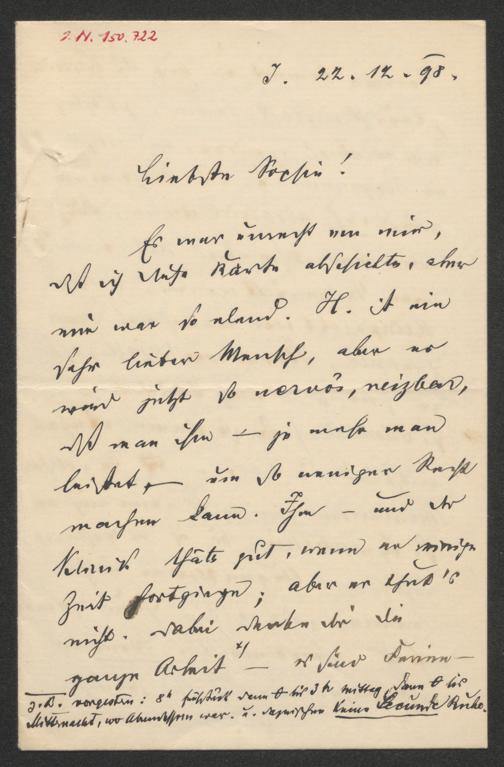 I. N. 150.722
J. 22.12.98.
Liebste Sophie!
Es war unrecht von mir,
daß ich diese Karte abschickte, aber
mir war so elend. H. ist ein
sehr lieber Mensch, aber er
wird jetzt so nervös, reizbar,
daß man ihm — je mehr man
leistet, — um so weniger Recht
machen kann. Ihm — und der
Klinik thäts gut, wenn er einige
Zeit fortginge; aber er thut's
nicht. Dabei denke dir die
ganze Arbeit *) — es sind Ferien —
z.B. vorgestern: 8h Frühstück dann bis 3h Mittag, dann bis
Mitternacht, wo Abendessen war. u. dazwischen keine Secunde Ruhe.